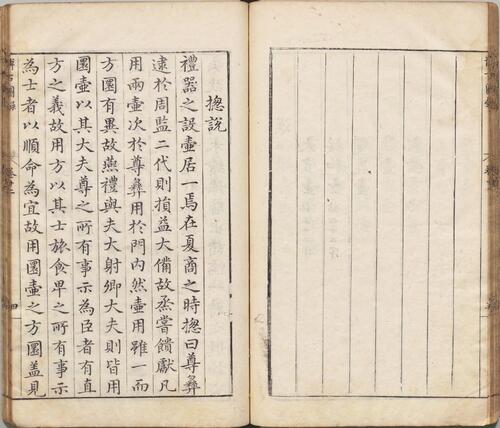 揔説
禮器之設壷居一焉在夏商之時揔曰尊彝
逮於周監二代則損益大備故烝嘗饋獻凡
用兩壷次於尊彝用於門内然壷用雖一而
方圎有異故燕禮與夫大射卿大夫則皆用
圎壷以其大夫尊之所有事示為臣者有直
方之義故用方以其士旅食卑之所有事示
為士者以順命為宜故用圎壷之方圎盖見